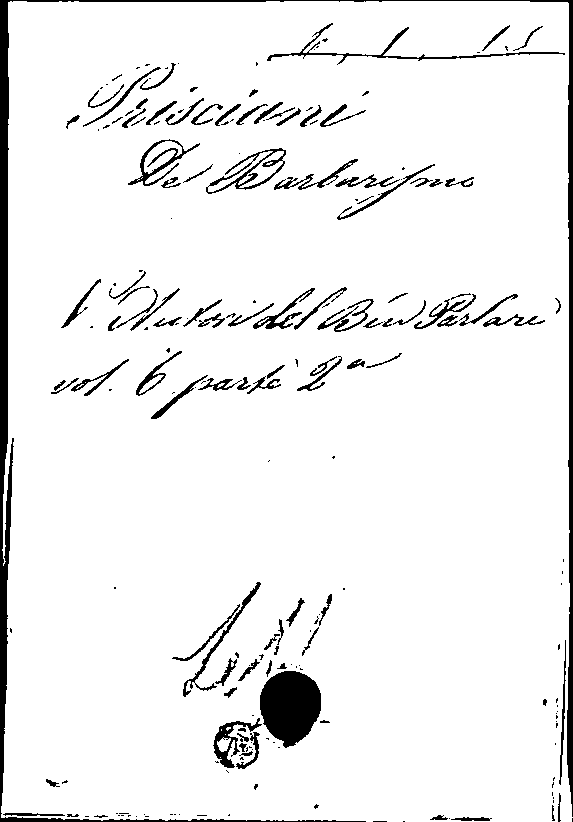 Prisciani
De Barbarismo
V. Autori del Ben Parlare
vol. 6 parte 2a